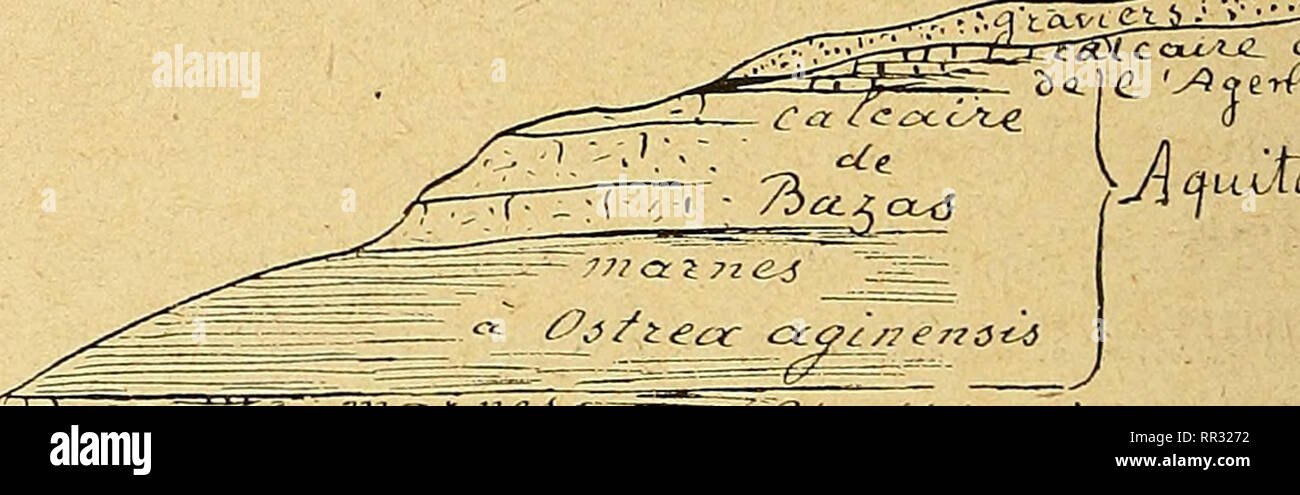 graviers
calcaire
de l'Agen
calcaire
de
Bazas
Aquita
marnes
à Ostrea aginensis
marnes
alamy
Image ID: RR3272
www.alamy.com